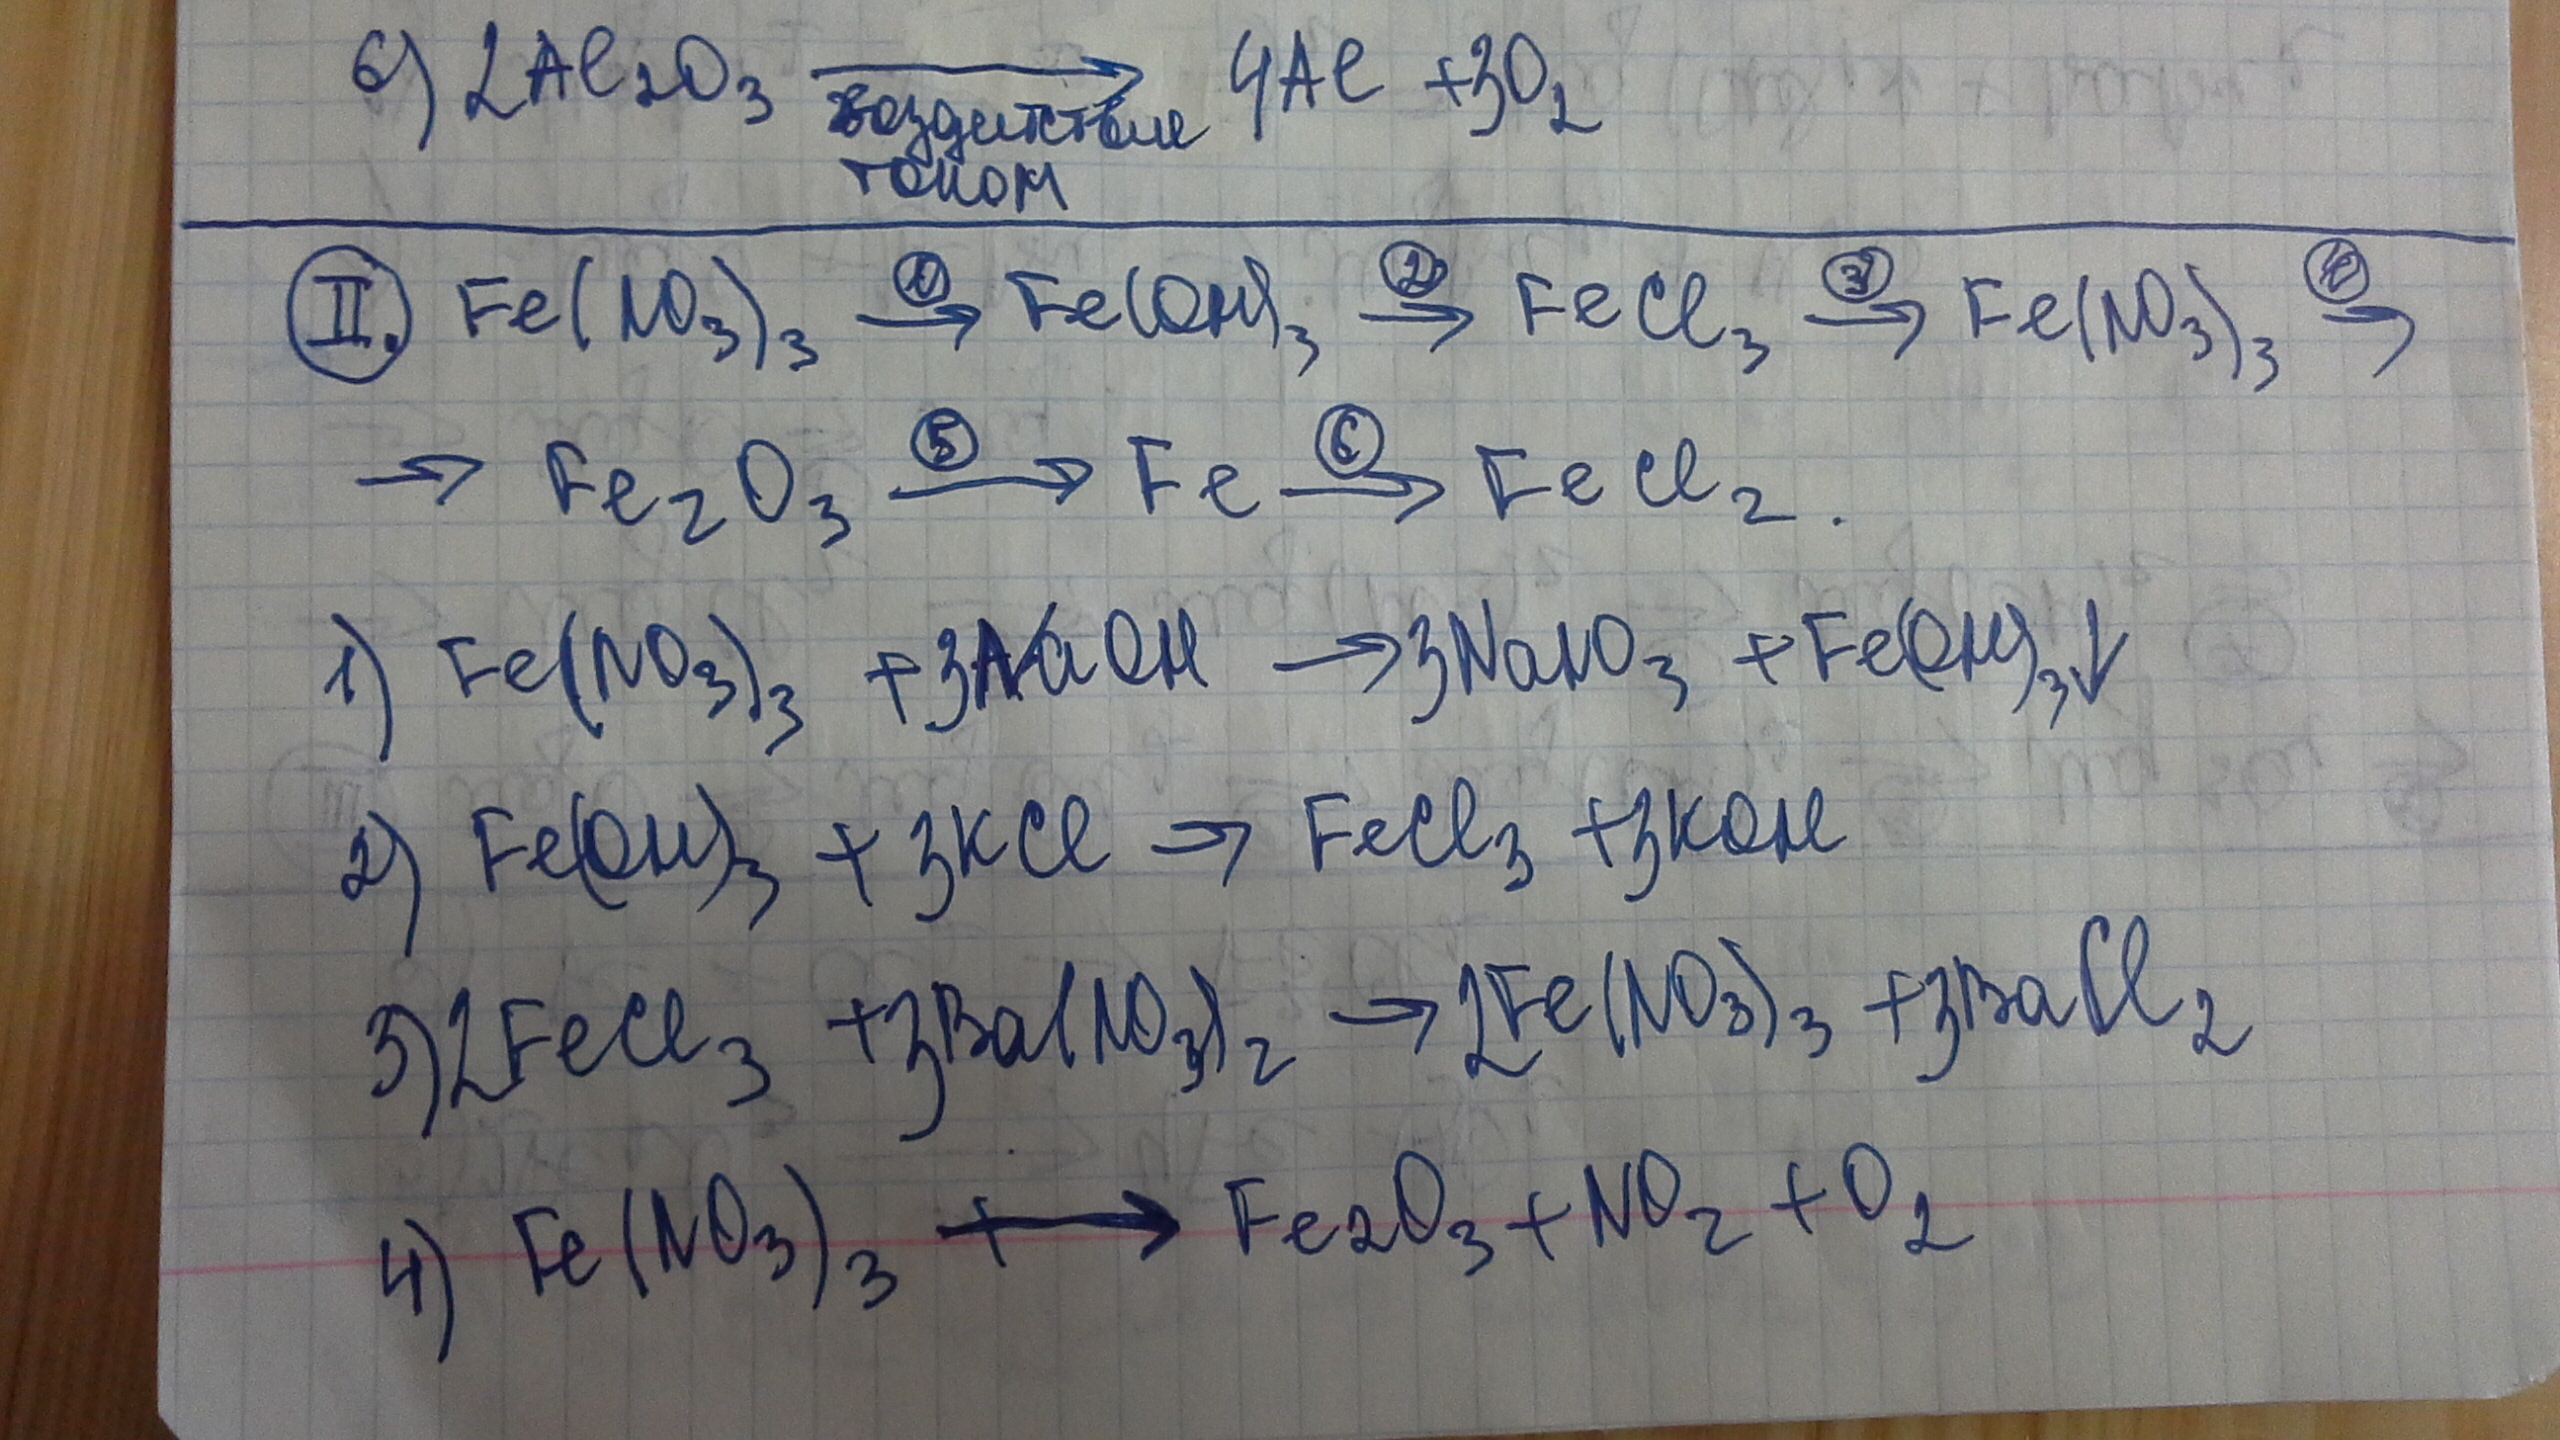 6) 2Al₂O₃ → 4Al + 3O₂
воздействие
током
II. Fe(NO₃)₃ →① Fe(OH)₃ →② FeCl₃ →③ Fe(NO₃)₃ →④
→ Fe₂O₃ →⑤ Fe →⑥ FeCl₂.
1) Fe(NO₃)₃ + 3NaOH → 3NaNO₃ + Fe(OH)₃↓
2) Fe(OH)₃ + 3KCl → FeCl₃ + 3KOH
3) 2FeCl₃ + 3Ba(NO₃)₂ → 2Fe(NO₃)₃ + 3BaCl₂
4) Fe(NO₃)₃ → Fe₂O₃ + NO₂ + O₂